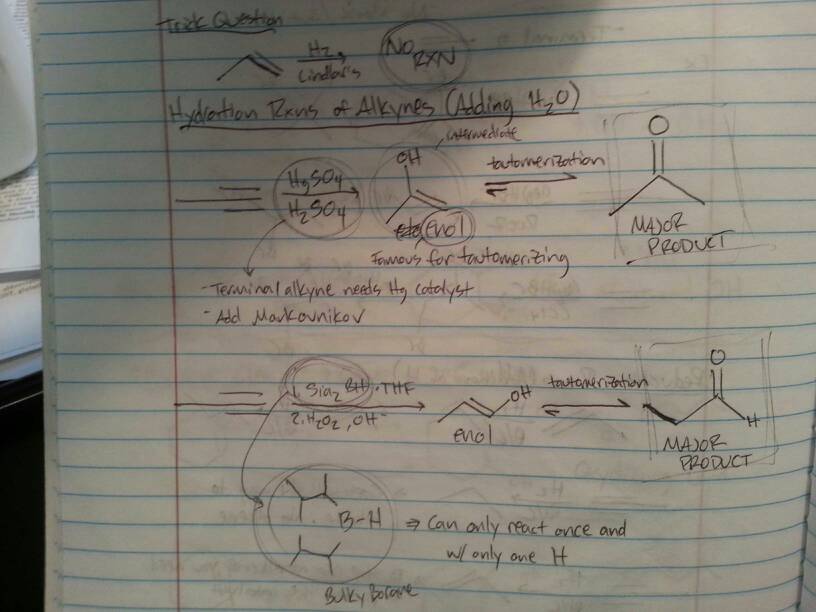 Trick Question
H2
Lindlar's
NO RXN
Hydration Rxns of Alkynes (Adding H2O)
intermediate
OH
HgSO4
H2SO4
tautomerization
O
Enol
MAJOR PRODUCT
Famous for tautomerizing
- Terminal alkyne needs Hg catalyst
- Add Markovnikov
1. Sia2BH·THF
2. H2O2, OH-
OH
Enol
tautomerization
O
H
MAJOR PRODUCT
B-H ⇒ Can only react once and
w/ only one H
Bulky Borane